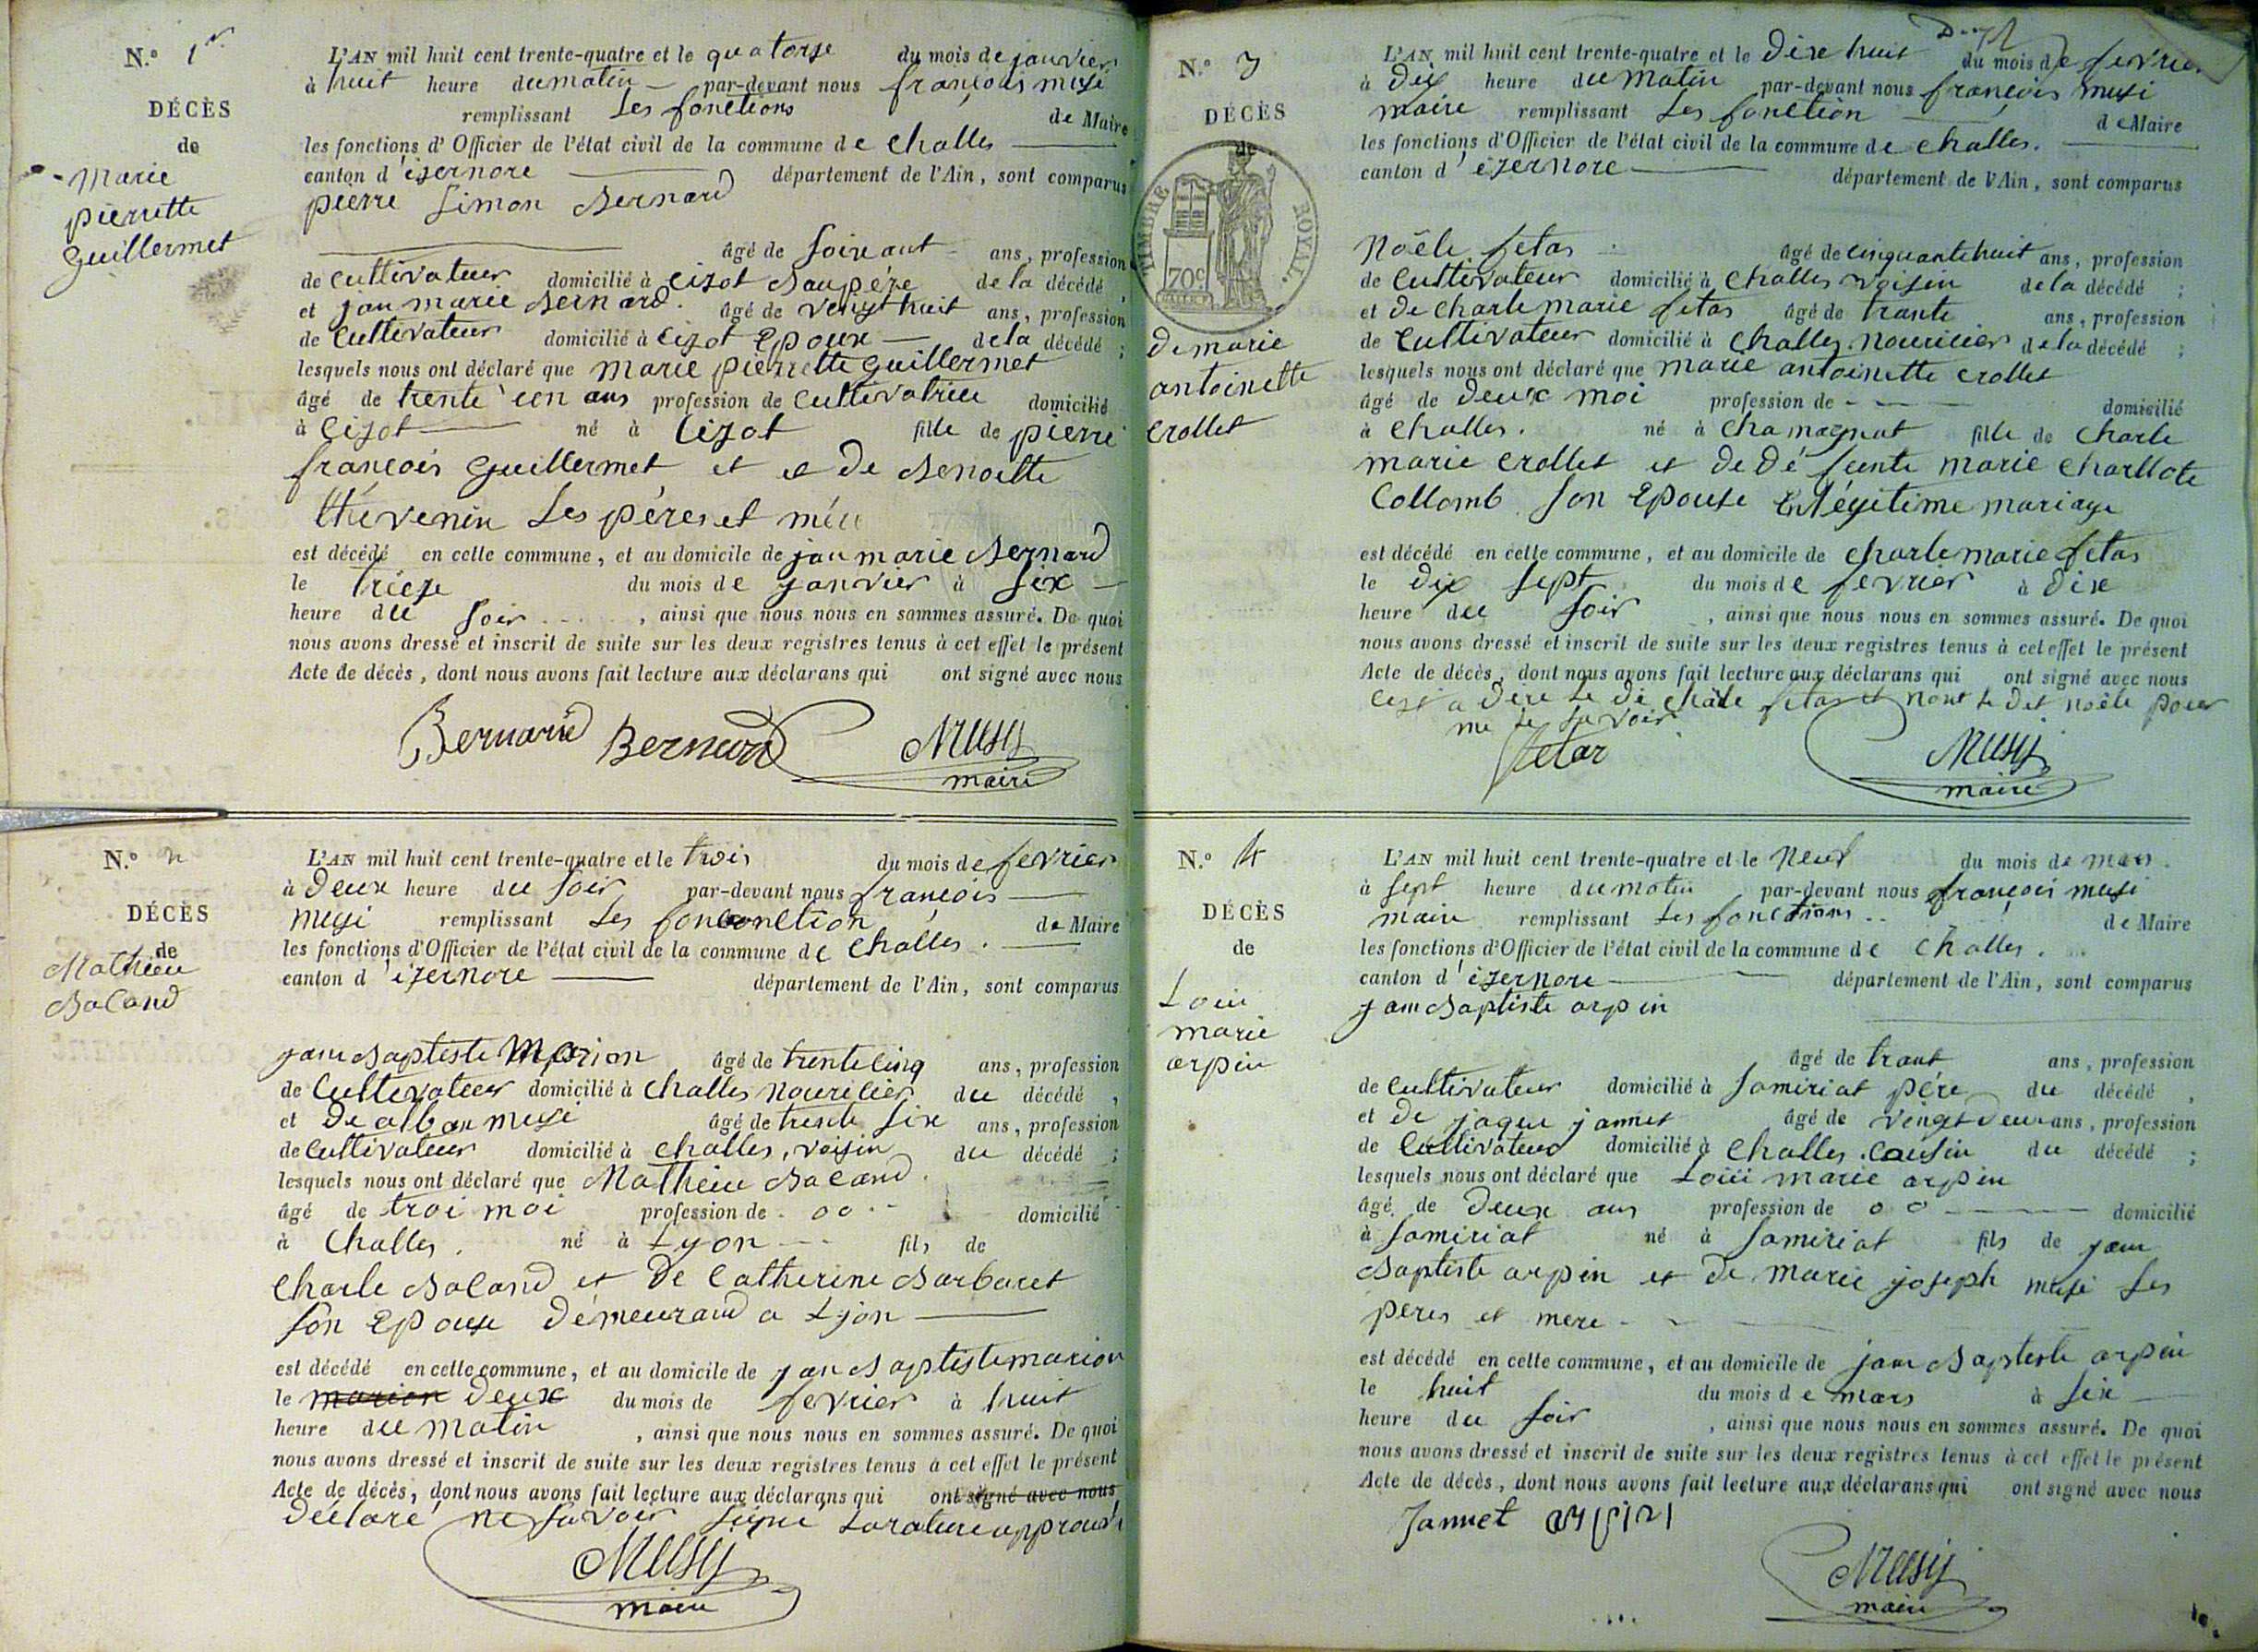 N.º 1er
DÉCÈS
de
Marie
pierrette
guillermet
L'AN mil huit cent trente-quatre et le quatorze du mois de janvier
à huit heure du matin par-devant nous françois musi
remplissant Les fonctions de Maire
les fonctions d'Officier de l'état civil de la commune de Challes
canton d'izernore département de l'Ain, sont comparus
pierre Simon Bernard
âgé de Soixant ans, profession
de cultivateur domicilié à Cizot Baupére de la décédé,
et jan marie Bernard. âgé de vengt huit ans, profession
de Cultivateur domicilié à Cizot Epoux de la décédé ;
lesquels nous ont déclaré que marie pierrette guillermet
âgé de trente un ans profession de Cultivatrice domicilié
à Cizot né à Cizot fille de pierre
françois guillermet et de Benoitte
thévenin Ses péres et mére
est décédé en cette commune, et au domicile de jan marie Bernard
le trieze du mois de janvier à Six
heure du Soir, ainsi que nous nous en sommes assuré. De quoi
nous avons dressé et inscrit de suite sur les deux registres tenus à cet effet le présent
Acte de décès, dont nous avons fait lecture aux déclarans qui ont signé avec nous
Bernard Bernard Musy
maire
N.º 2
DÉCÈS
de
Mathieu
Baland
L'AN mil huit cent trente-quatre et le trois du mois de fevrier
à Deux heure du Soir par-devant nous françois
musi remplissant Les fonction de Maire
les fonctions d'Officier de l'état civil de la commune de Challes.
canton d'izernore département de l'Ain, sont comparus
jan Baptiste Marion âgé de trente cinq ans, profession
de Cultivateur domicilié à Challes nouricier du décédé,
et De alban musi âgé de trente Six ans, profession
de Cultivateur domicilié à Challes, voisin du décédé ;
lesquels nous ont déclaré que Mathieu Baland.
âgé de troi moi profession de domicilié
à Challes. né à Lyon fils de
Charle Baland et De Catherine Barbaret
Son Epouse Démeurand a Lyon
est décédé en cette commune, et au domicile de jan Baptiste marion
le marion Deux du mois de fevrier à huit
heure du matin, ainsi que nous nous en sommes assuré. De quoi
nous avons dressé et inscrit de suite sur les deux registres tenus à cet effet le présent
Acte de décès, dont nous avons fait lecture aux déclarans qui ont signé avec nous
Déclaré ne Savoir Signé
Musy
maire
N.º 3
DÉCÈS
de
TIMBRE ROYAL.
70c
De marie
antoinette
Crollet
L'AN mil huit cent trente-quatre et le Dixe huit du mois de fevrier
à Dix heure du matin par-devant nous françois musi
maire remplissant Les fonction de Maire
les fonctions d'Officier de l'état civil de la commune de Challes.
canton d'izernore département de l'Ain, sont comparus
Noële fetas âgé de cinquante huit ans, profession
de Cultivateur domicilié à Challes voisin de la décédé ;
et de Charle marie fetas âgé de trante ans, profession
de Cultivateur domicilié à Challes. nouricier de la décédé ;
lesquels nous ont déclaré que marie antoinette Crollet
âgé de Deux moi profession de domicilié
à Challes. né à Chamagnat fille de Charle
marie Crollet et de Dé funte marie Charllote
Collomb Son Epouse En légitime mariage
est décédé en cette commune, et au domicile de Charle marie fetas
le Dix Sept du mois de fevrier à Dixe
heure du Soir, ainsi que nous nous en sommes assuré. De quoi
nous avons dressé et inscrit de suite sur les deux registres tenus à cet effet le présent
Acte de décès, dont nous avons fait lecture aux déclarans qui ont signé avec nous
Cest a Dire Le Di Chale fetas et nont Le Dit Noële pour
me Le Savoir
fetas Musy
maire
N.º 4
DÉCÈS
de
Loui
marie
arpin
L'AN mil huit cent trente-quatre et le Neuf du mois de mars
à Sept heure du matin par-devant nous françois musi
maire remplissant Les fonctions de Maire
les fonctions d'Officier de l'état civil de la commune de Challes.
canton d'izernore département de l'Ain, sont comparus
jan Baptiste arpin
âgé de trant ans, profession
de Cultivateur domicilié à Samiriat pére du décédé,
et De jaque jannet âgé de vingt Deux ans, profession
de Cultivateur domicilié à Challes. Cousin du décédé ;
lesquels nous ont déclaré que Loui marie arpin
âgé de Deux ans profession de domicilié
à Samiriat né à Samiriat fils de jan
Baptiste arpin et De marie joseph musi Ses
peres et mere
est décédé en cette commune, et au domicile de jan Baptiste arpin
le huit du mois de mars à Six
heure du Soir, ainsi que nous nous en sommes assuré. De quoi
nous avons dressé et inscrit de suite sur les deux registres tenus à cet effet le présent
Acte de décès, dont nous avons fait lecture aux déclarans qui ont signé avec nous
Jannet arpin
Musy
maire